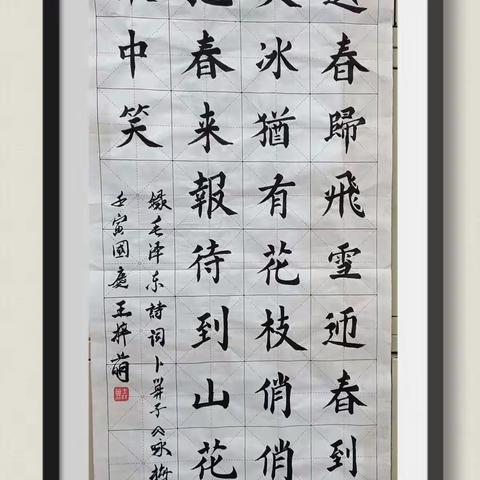 春歸飛雪迎春到
冰猶有花枝俏俏
春来報待到山花
中笑
錄毛泽东詩词卜算子《咏梅
壬寅國慶王梓萌